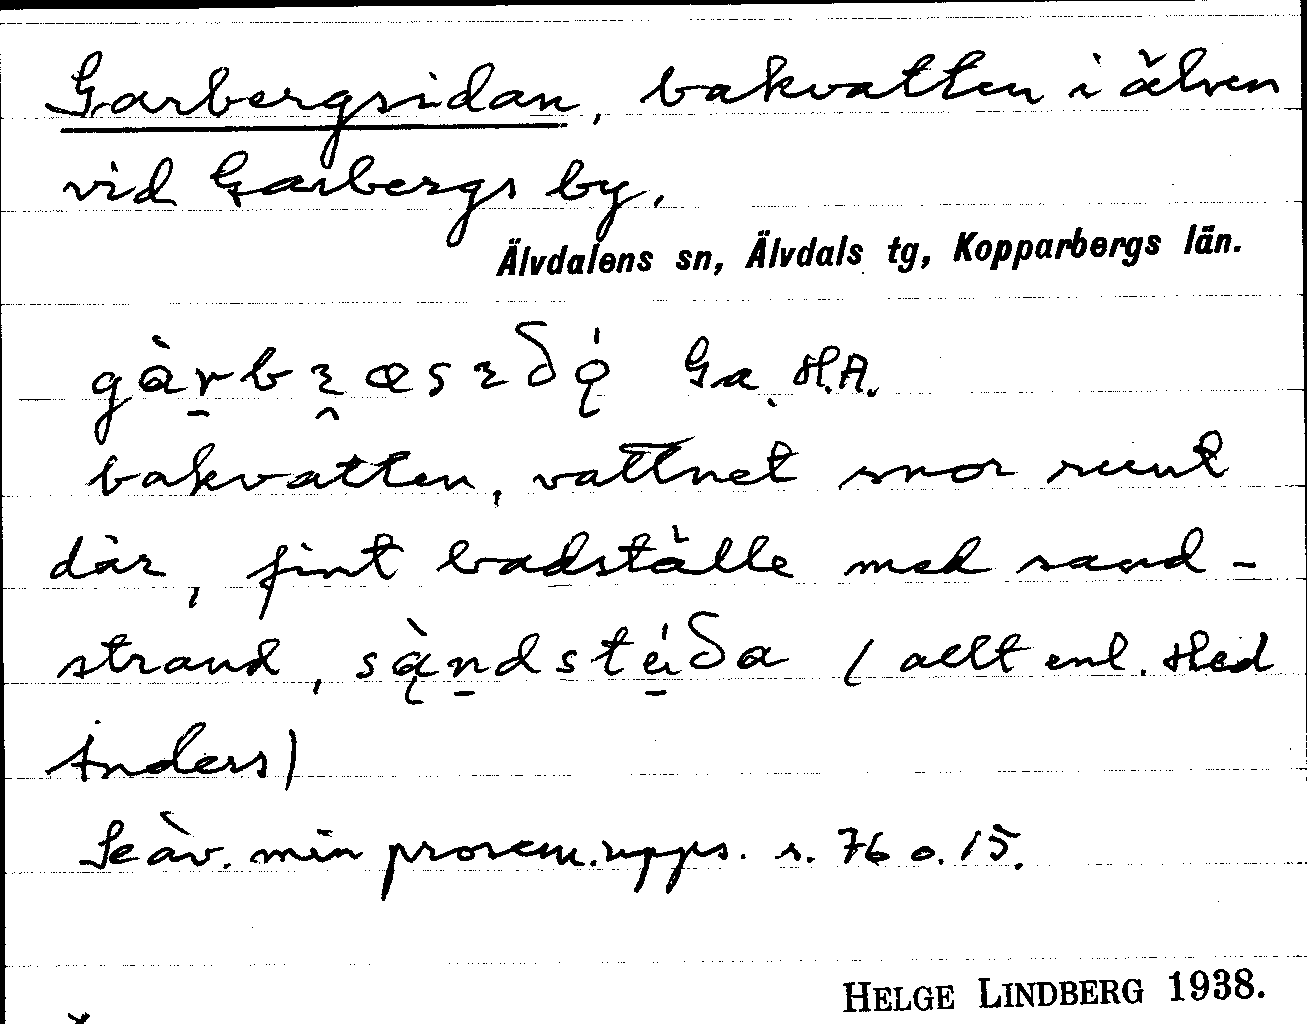 Garbergsidan, bakvatten i älven
vid Garbergs by.
Älvdalens sn, Älvdals tg, Kopparbergs län.
Ga. H.A.
bakvatten, vattnet snor runt
där, fint badställe med sand-
strand, (allt enl. Hed
Anders)
Se äv. min prosem.upps. s. 76 o. 15.
HELGE LINDBERG 1938.